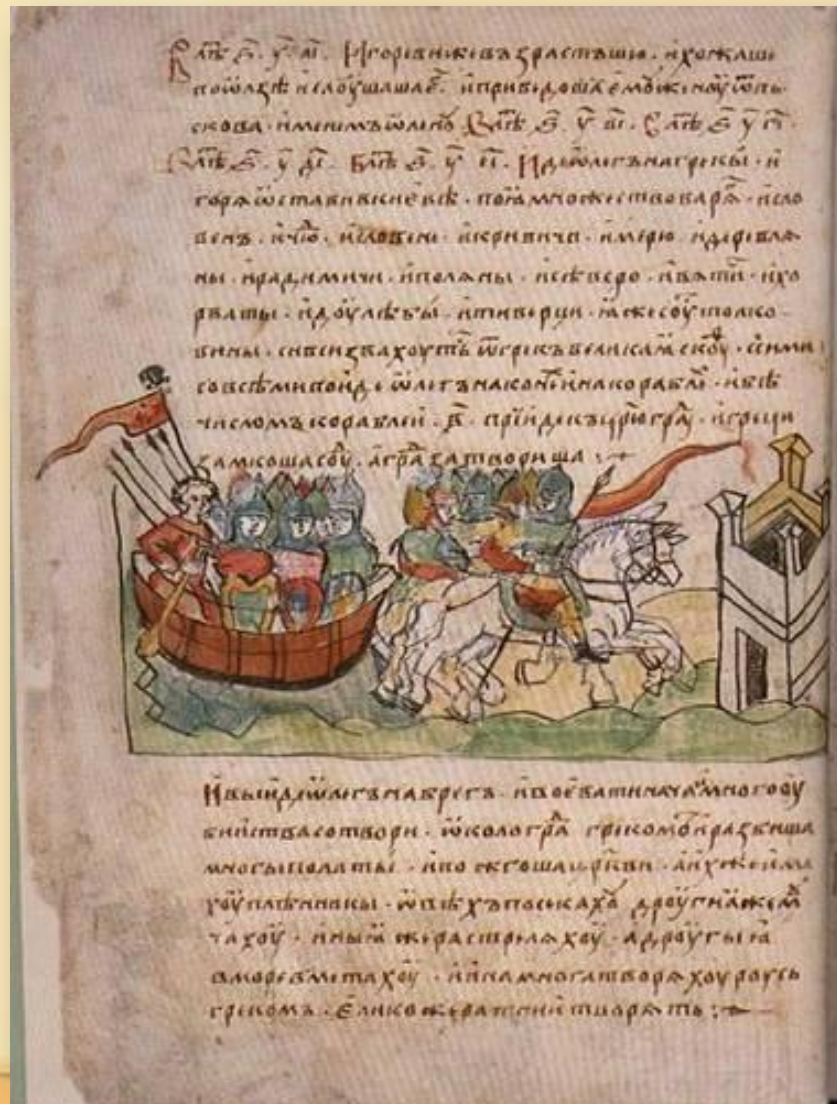 В лѣⷮ ҂ѕ҃ . у҃ . аі҃ . Игореви же възрастъшю . и хожаше
по ѿлзѣ и слоушаше еⷢ . и приведоша емоу женоу ѿ пь
скова . именмъ ѿленоу В лѣⷮ ҂ѕ҃ . у҃ ві҃ . В лѣⷮ ҂ѕ҃ у҃ гі҃ .
В лѣⷮ ҂ѕ҃ . у҃ ді҃ . В лѣⷮ ҂ѕ҃ . у҃ еі҃ . Иде ѿлегъ на грекы . и
горя ѿставив киевѣ . поꙗ множество варяⷢ . и сло
венъ . и чюⷣ . и словене . и кривичи . и мерю . и деревля
ны . и радимичи . и поляны . и сѣверо . и вятичи . и хо
рваты . и доулѣбы . и тиверци . ꙗже соуⷮ толко
вины . си вси звахоутьⷭ ѿ грекъ великаꙗ скоуⷴ . с сими
со всѣми поиде ѿлегъ на конеⷯ и на кораблеⷯ . и бѣ
числомъ кораблеи . в҃ . прїиде къ црⷭ҇ю граⷣ . и греци
замкоша соуⷣ . а граⷣ затвориша :~
И выиде ѿлегъ на брегъ . и воевати начаⷮ . и много оу
бииства сотвори . ѿколо граⷣ грекомъ и разбиша
многы полаты . и пожгоша црⷪ҇кви . а ихже има
хоу плѣнникы . ѿвѣхъ посѣкахоу дроугиꙗ же моуⷱ
чахоу . иныꙗ же растреляхоу . а дроугыꙗ
в море вметахоу . и ина многа творяхоу роусь
грекомъ . елико же ратнии творять :~